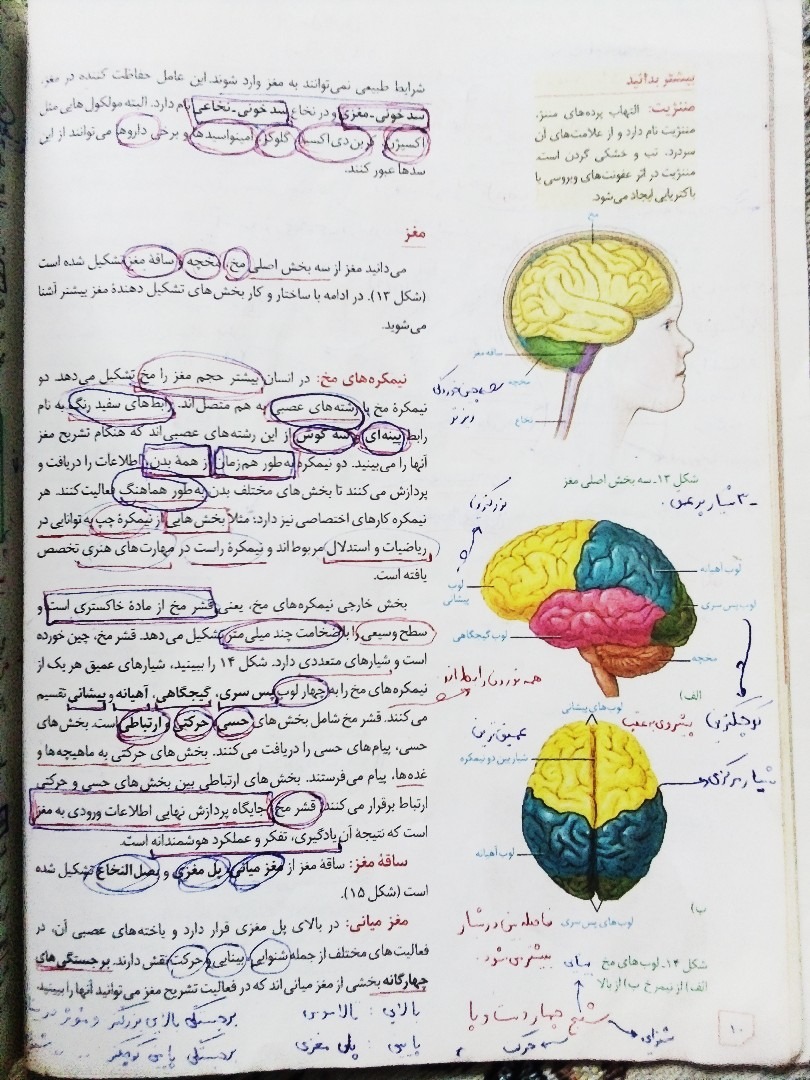 شرایط طبیعی نمی‌توانند به مغز وارد شوند. این عامل حفاظت کننده در مغز،
سد خونی-مغزی و در نخاع سد خونی-نخاعی نام دارد. البته مولکول‌هایی مثل
اکسیژن، کربن دی‌اکسید، گلوکز، آمینواسیدها و برخی داروها می‌توانند از این
سدها عبور کنند.
مغز
می‌دانید مغز از سه بخش اصلی مخ، مخچه و ساقهٔ مغز تشکیل شده است
(شکل ۱۳). در ادامه با ساختار و کار بخش‌های تشکیل دهندهٔ مغز بیشتر آشنا
می‌شوید.
نیمکره‌های مخ: در انسان بیشتر حجم مغز را مخ تشکیل می‌دهد. دو
نیمکرهٔ مخ با رشته‌های عصبی به هم متصل‌اند. رابط‌های سفید رنگ به نام
رابط پینه‌ای و سه گوش از این رشته‌های عصبی‌اند که هنگام تشریح مغز
آنها را می‌بینید. دو نیمکره به طور هم‌زمان از همهٔ بدن، اطلاعات را دریافت و
پردازش می‌کنند تا بخش‌های مختلف بدن به طور هماهنگ فعالیت کنند. هر
نیمکره کارهای اختصاصی نیز دارد؛ مثلاً بخش‌هایی از نیمکرهٔ چپ به توانایی در
ریاضیات و استدلال مربوط‌اند و نیمکرهٔ راست در مهارت‌های هنری تخصص
یافته است.
بخش خارجی نیمکره‌های مخ، یعنی قشر مخ از مادهٔ خاکستری است و
سطح وسیعی را با ضخامت چند میلی‌متر تشکیل می‌دهد. قشر مخ، چین خورده
است و شیارهای متعددی دارد. شکل ۱۴ را ببینید، شیارهای عمیق هر یک از
نیمکره‌های مخ را به چهار لوب پس سری، گیجگاهی، آهیانه و پیشانی تقسیم
می‌کنند. قشر مخ شامل بخش‌های حسی، حرکتی و ارتباطی است. بخش‌های
حسی، پیام‌های حسی را دریافت می‌کنند. بخش‌های حرکتی به ماهیچه‌ها و
غده‌ها، پیام می‌فرستند. بخش‌های ارتباطی بین بخش‌های حسی و حرکتی
ارتباط برقرار می‌کنند. قشر مخ جایگاه پردازش نهایی اطلاعات ورودی به مغز
است که نتیجهٔ آن یادگیری، تفکر و عملکرد هوشمندانه است.
ساقهٔ مغز: ساقهٔ مغز از مغز میانی، پل مغزی و بصل النخاع تشکیل شده
است (شکل ۱۵).
مغز میانی: در بالای پل مغزی قرار دارد و یاخته‌های عصبی آن، در
فعالیت‌های مختلف از جمله شنوایی، بینایی و حرکت نقش دارند. برجستگی‌های
چهارگانه بخشی از مغز میانی‌اند که در فعالیت تشریح مغز می‌توانید آنها را ببینید.
بالایی : تالاموس
پایین : پل مغزی
برجستگی بالایی بزرگتر و موثر در
برجستگی پایین کوچکتر
بیشتر بدانید
مننژیت: التهاب پرده‌های مننژ،
مننژیت نام دارد و از علامت‌های آن
سردرد، تب و خشکی گردن است.
مننژیت در اثر عفونت‌های ویروسی یا
باکتریایی ایجاد می‌شود.
مخ
ساقه مغز
مخچه
نخاع
شکل ۱۳ـ سه بخش اصلی مغز
۳ شیار پر عمق
بزرگترین
لوب آهیانه
لوب پیشانی
لوب پس سری
لوب گیجگاهی
مخچه
الف)
همه نورون رابط اند
کوچکترین
عمیق ترین
لوب‌های پیشانی
شیار بین دو نیمکره
شیار مرکزی
لوب آهیانه
لوب‌های پس سری
ب)
فاصله بین دو شیار
بیشتر می شود
شکل ۱۴ـ لوب‌های مخ
الف) از نیمرخ ب) از بالا
بینایی
شنوایی
حرکت
۱۰